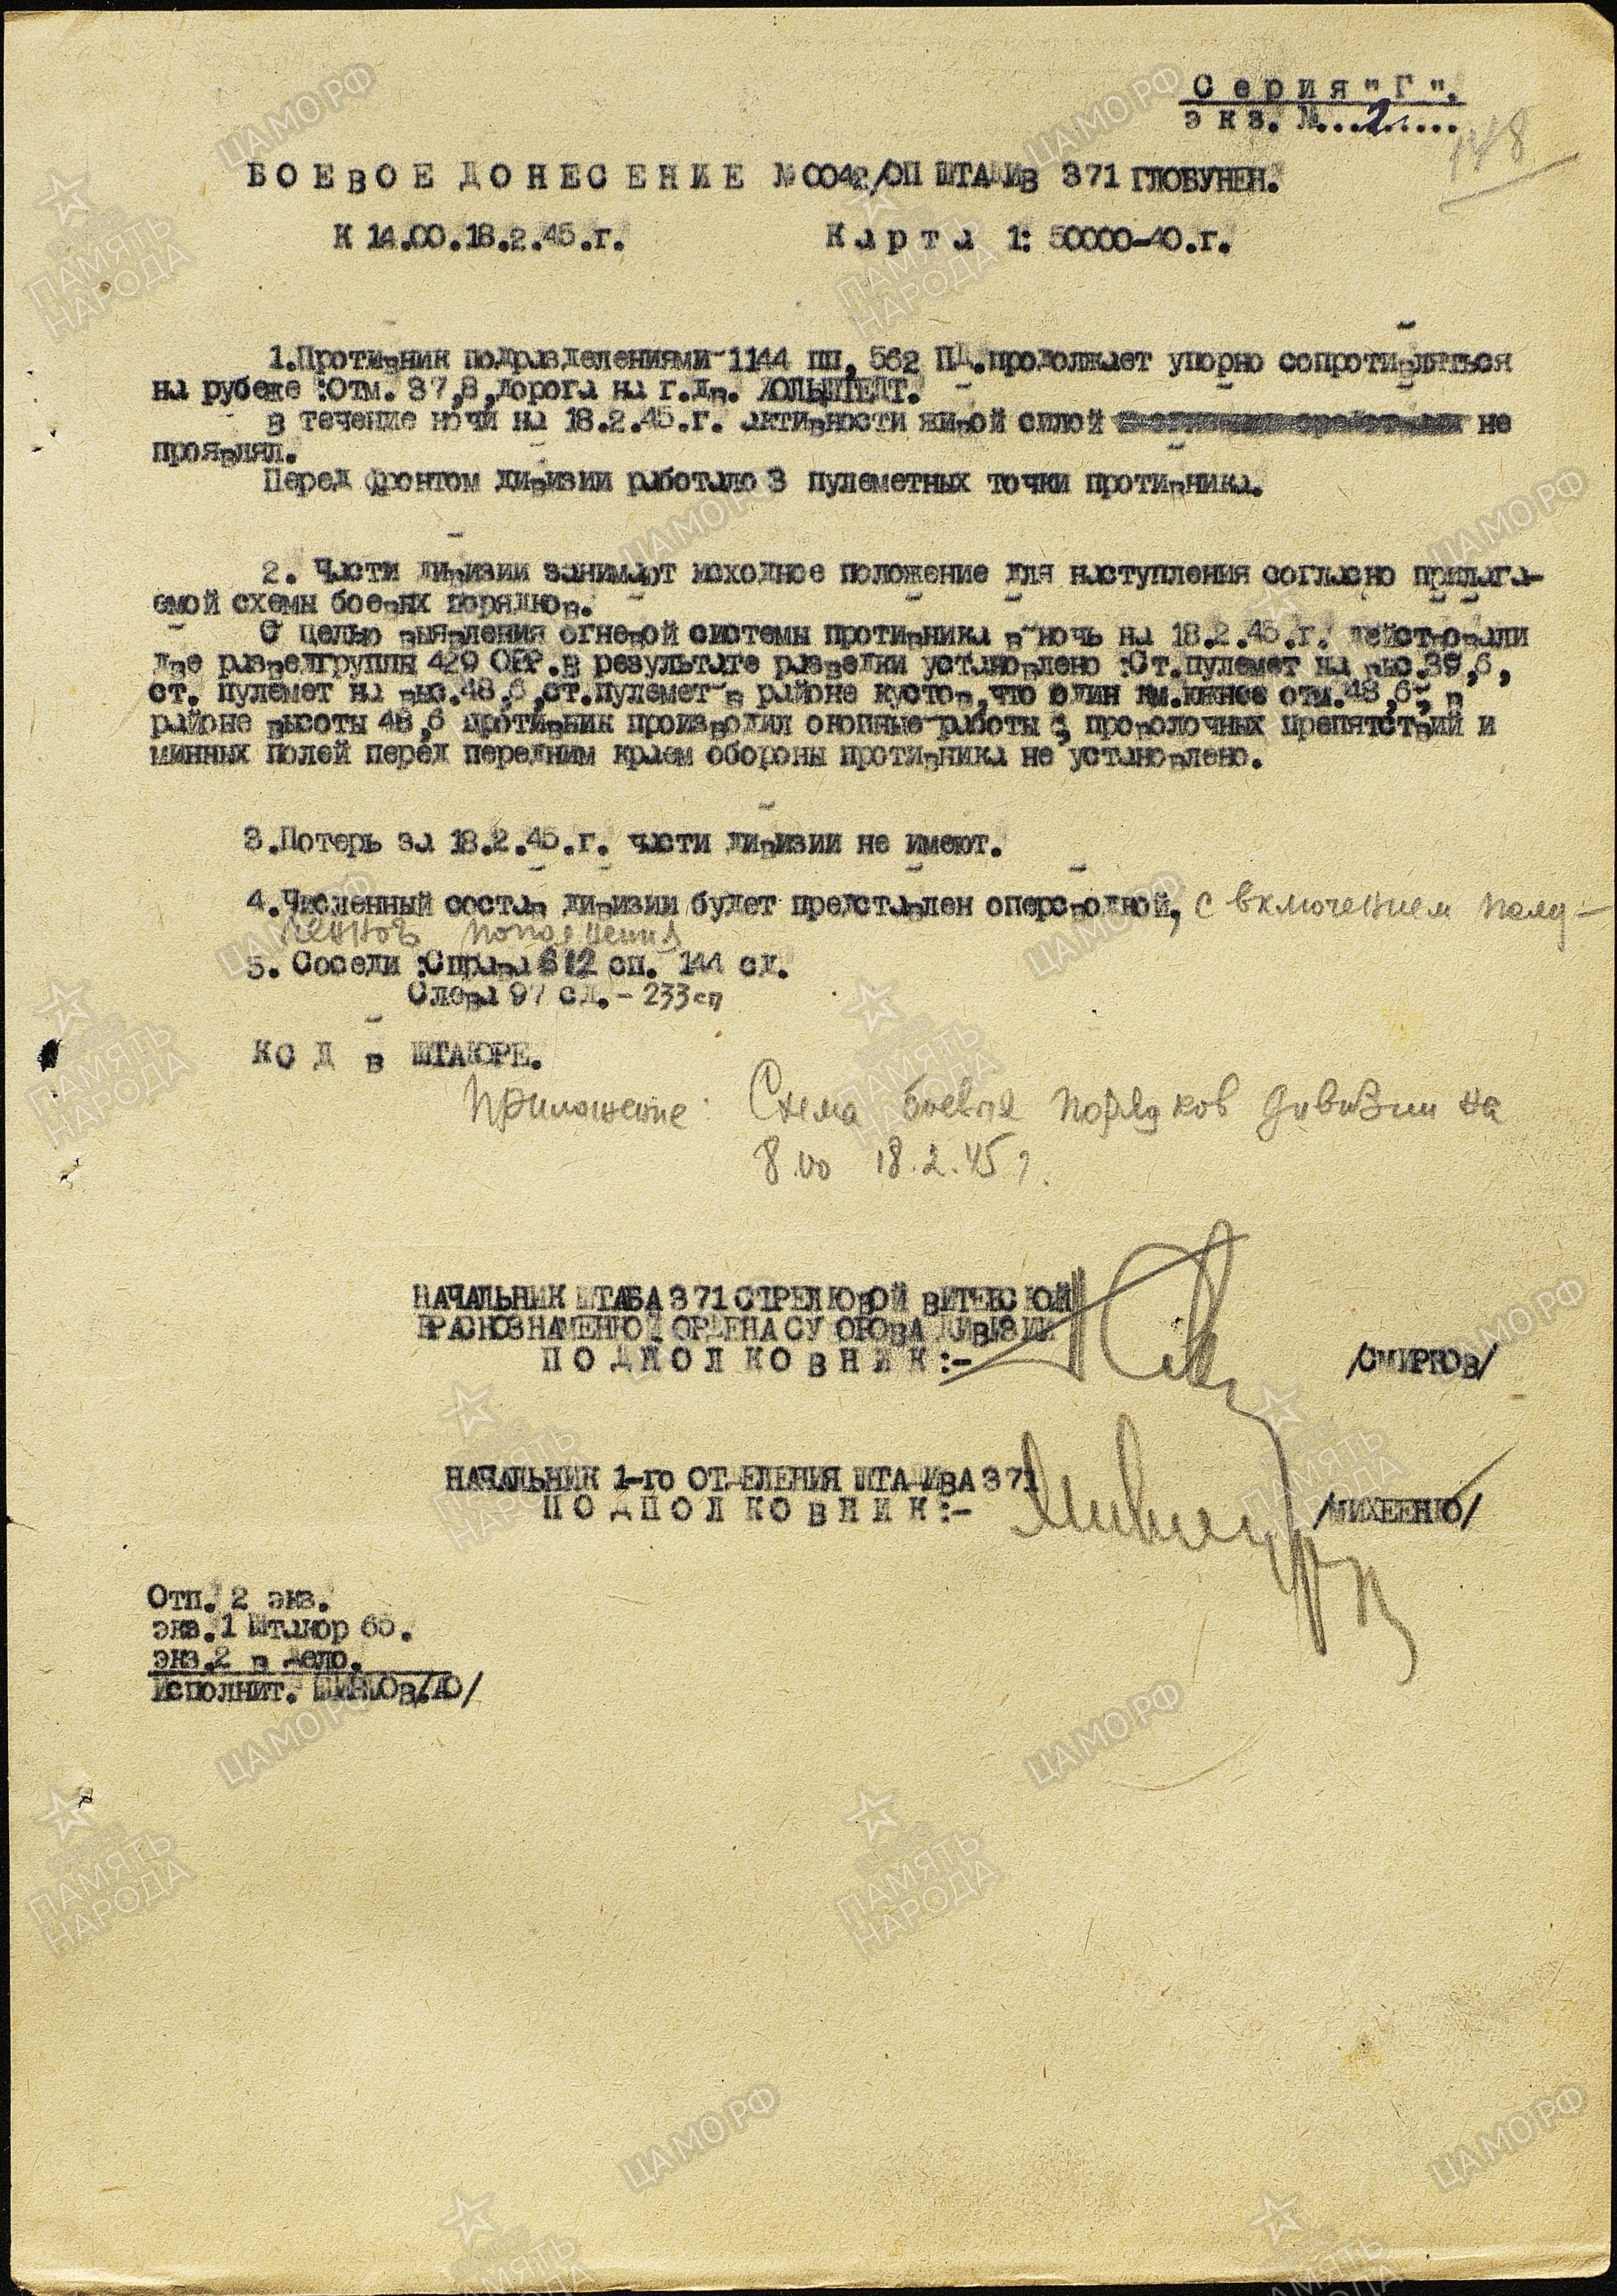 Серия "Г".
экз. №...2.....
148
БОЕВОЕ ДОНЕСЕНИЕ №0042/ОП ШТАДИВ 371 ГЛОБУНЕН.
К 14.00.18.2.45.г. Карта 1: 50000-40.г.
1.Противник подразделениями 1144 пп, 562 ПД.продолжает упорно сопротивляться
на рубеже :Отм. 37,8,дорога на г.дв. ХОЛЬШТЕДТ.
В течение ночи на 18.2.45.г. активности живой силой не
проявлял.
Перед фронтом дивизии работало 3 пулеметных точки противника.
2. Части дивизии занимают исходное положение для наступления согласно прилага-
емой схемы боевых порядков.
С целью выявления огневой системы противника в ночь на 18.2.45.г. действовали
две разведгруппы 429 ОРР.В результате разведки установлено :Ст.пулемет на выс.39,6,
ст. пулемет на выс.48,6,ст.пулемет в районе кустов,что один км.южнее отм.48,6; в
районе высоты 48,6 противник производил окопные работы ; проволочных препятствий и
минных полей перед передним краем обороны противника не установлено.
3.Потерь за 18.2.45.г. части дивизии не имеют.
4.Численный состав дивизии будет представлен оперсводкой, с включением полу-
ченного пополнения
5. Соседи :Справа 612 сп. 144 сд.
Слева 97 сд. - 233 сп
КОД в ШТАКОРЕ.
Приложение: Схема боевых порядков дивизии на
8.00 18.2.45 г.
НАЧАЛЬНИК ШТАБА 371 СТРЕЛКОВОЙ ВИТЕБСКОЙ
КРАСНОЗНАМЕННОЙ ОРДЕНА СУВОРОВА ДИВИЗИИ
ПОДПОЛКОВНИК:- /СМИРНОВ/
НАЧАЛЬНИК 1-го ОТДЕЛЕНИЯ ШТАДИВА 371
ПОДПОЛКОВНИК:- /МИХЕЕНКО/
Отп. 2 экз.
экз.1 Штакор 65.
экз.2 в дело.
Исполнит.
ЦАМО.РФ
ПАМЯТЬ
НАРОДА